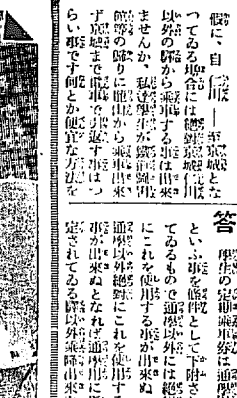 假に、自仁川――至京城とな
つてゐる場合には絶對京城仁川
以外の驛から乘車する事は出來
ませんか、私達學生が
龍山から乘車出來
ず京城まで電車で引返す事はつ
らい事です何とか便宜な方法を
答
學生の定期乘車券は通學
といふ事を條件として下附さ
てゐるもので通學以外には絶
にこれを使用する事が出來ぬ
通學以外絶對にこれを使用す
事が出來ぬとなれば通學用に
定されてゐる驛以外乘降出來